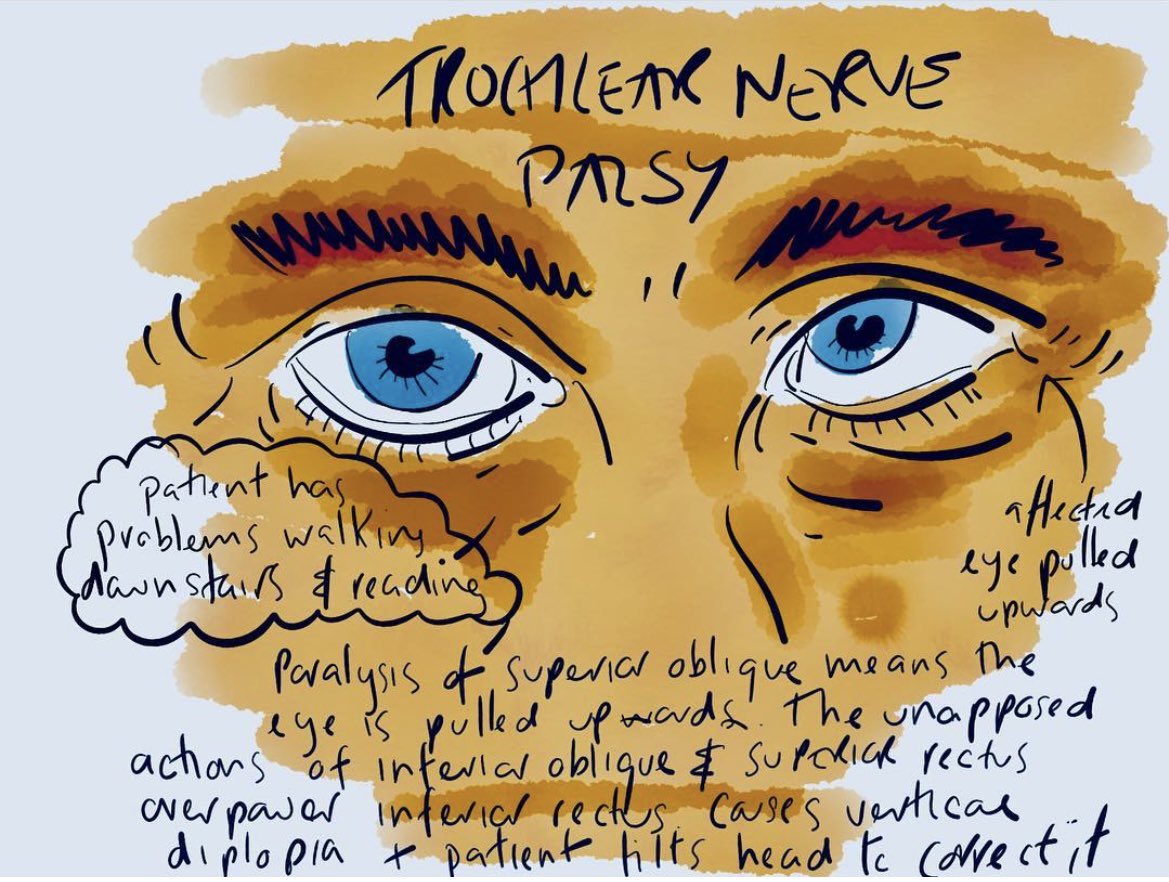 TROCHLEAR NERVE
PALSY
patient has
problems walking
downstairs & reading
affected
eye pulled
upwards
Paralysis of superior oblique means the
eye is pulled upwards. The unapposed
actions of inferior oblique & superior rectus
overpower inferior rectus. Causes vertical
diplopia + patient tilts head to correct it